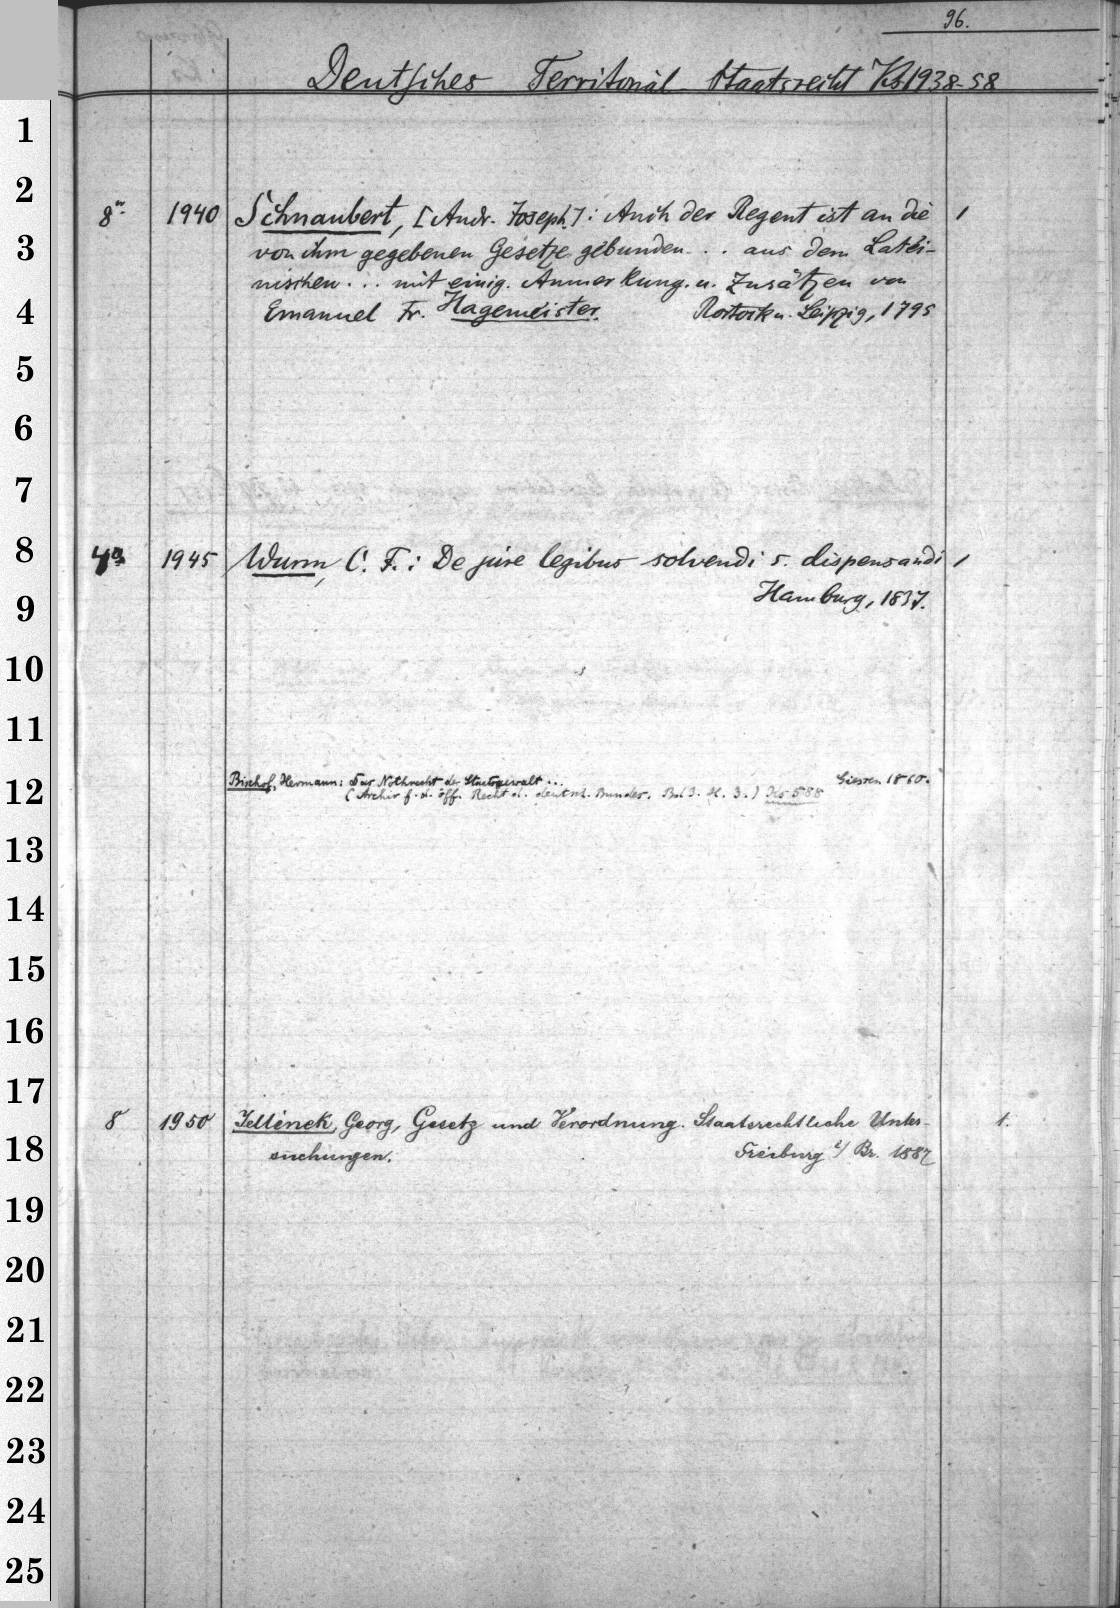 96.
Deutsches Territorial-Staatsrecht Ks 1938-58
1
2
8º 1940 Schnaubert, [Andr. Joseph]: Auch der Regent ist an die 1
3
von ihm gegebenen Gesetze gebunden... aus dem Latei-
nischen... mit einig. Anmerkung. u. Zusätzen von
4
Emanuel Fr. Hagemeister. Rostock u. Leipzig, 1795
5
6
7
8
4º 1945 Wurm, C. F.: De jure legibus solvendi s. dispensandi 1
9
Hamburg, 1837.
10
11
Bischof, Hermann: Das Nothrecht der Staatsgewalt... Giessen 1860.
12
(Archiv f. d. öff. Recht d. deutsch. Bundes. Bd 3. H. 3.) Ks 588
13
14
15
16
17
8 1950 Jellinek, Georg, Gesetz und Verordnung. Staatsrechtliche Unter- 1.
18
suchungen. Freiburg i/ Br. 1887
19
20
21
22
23
24
25